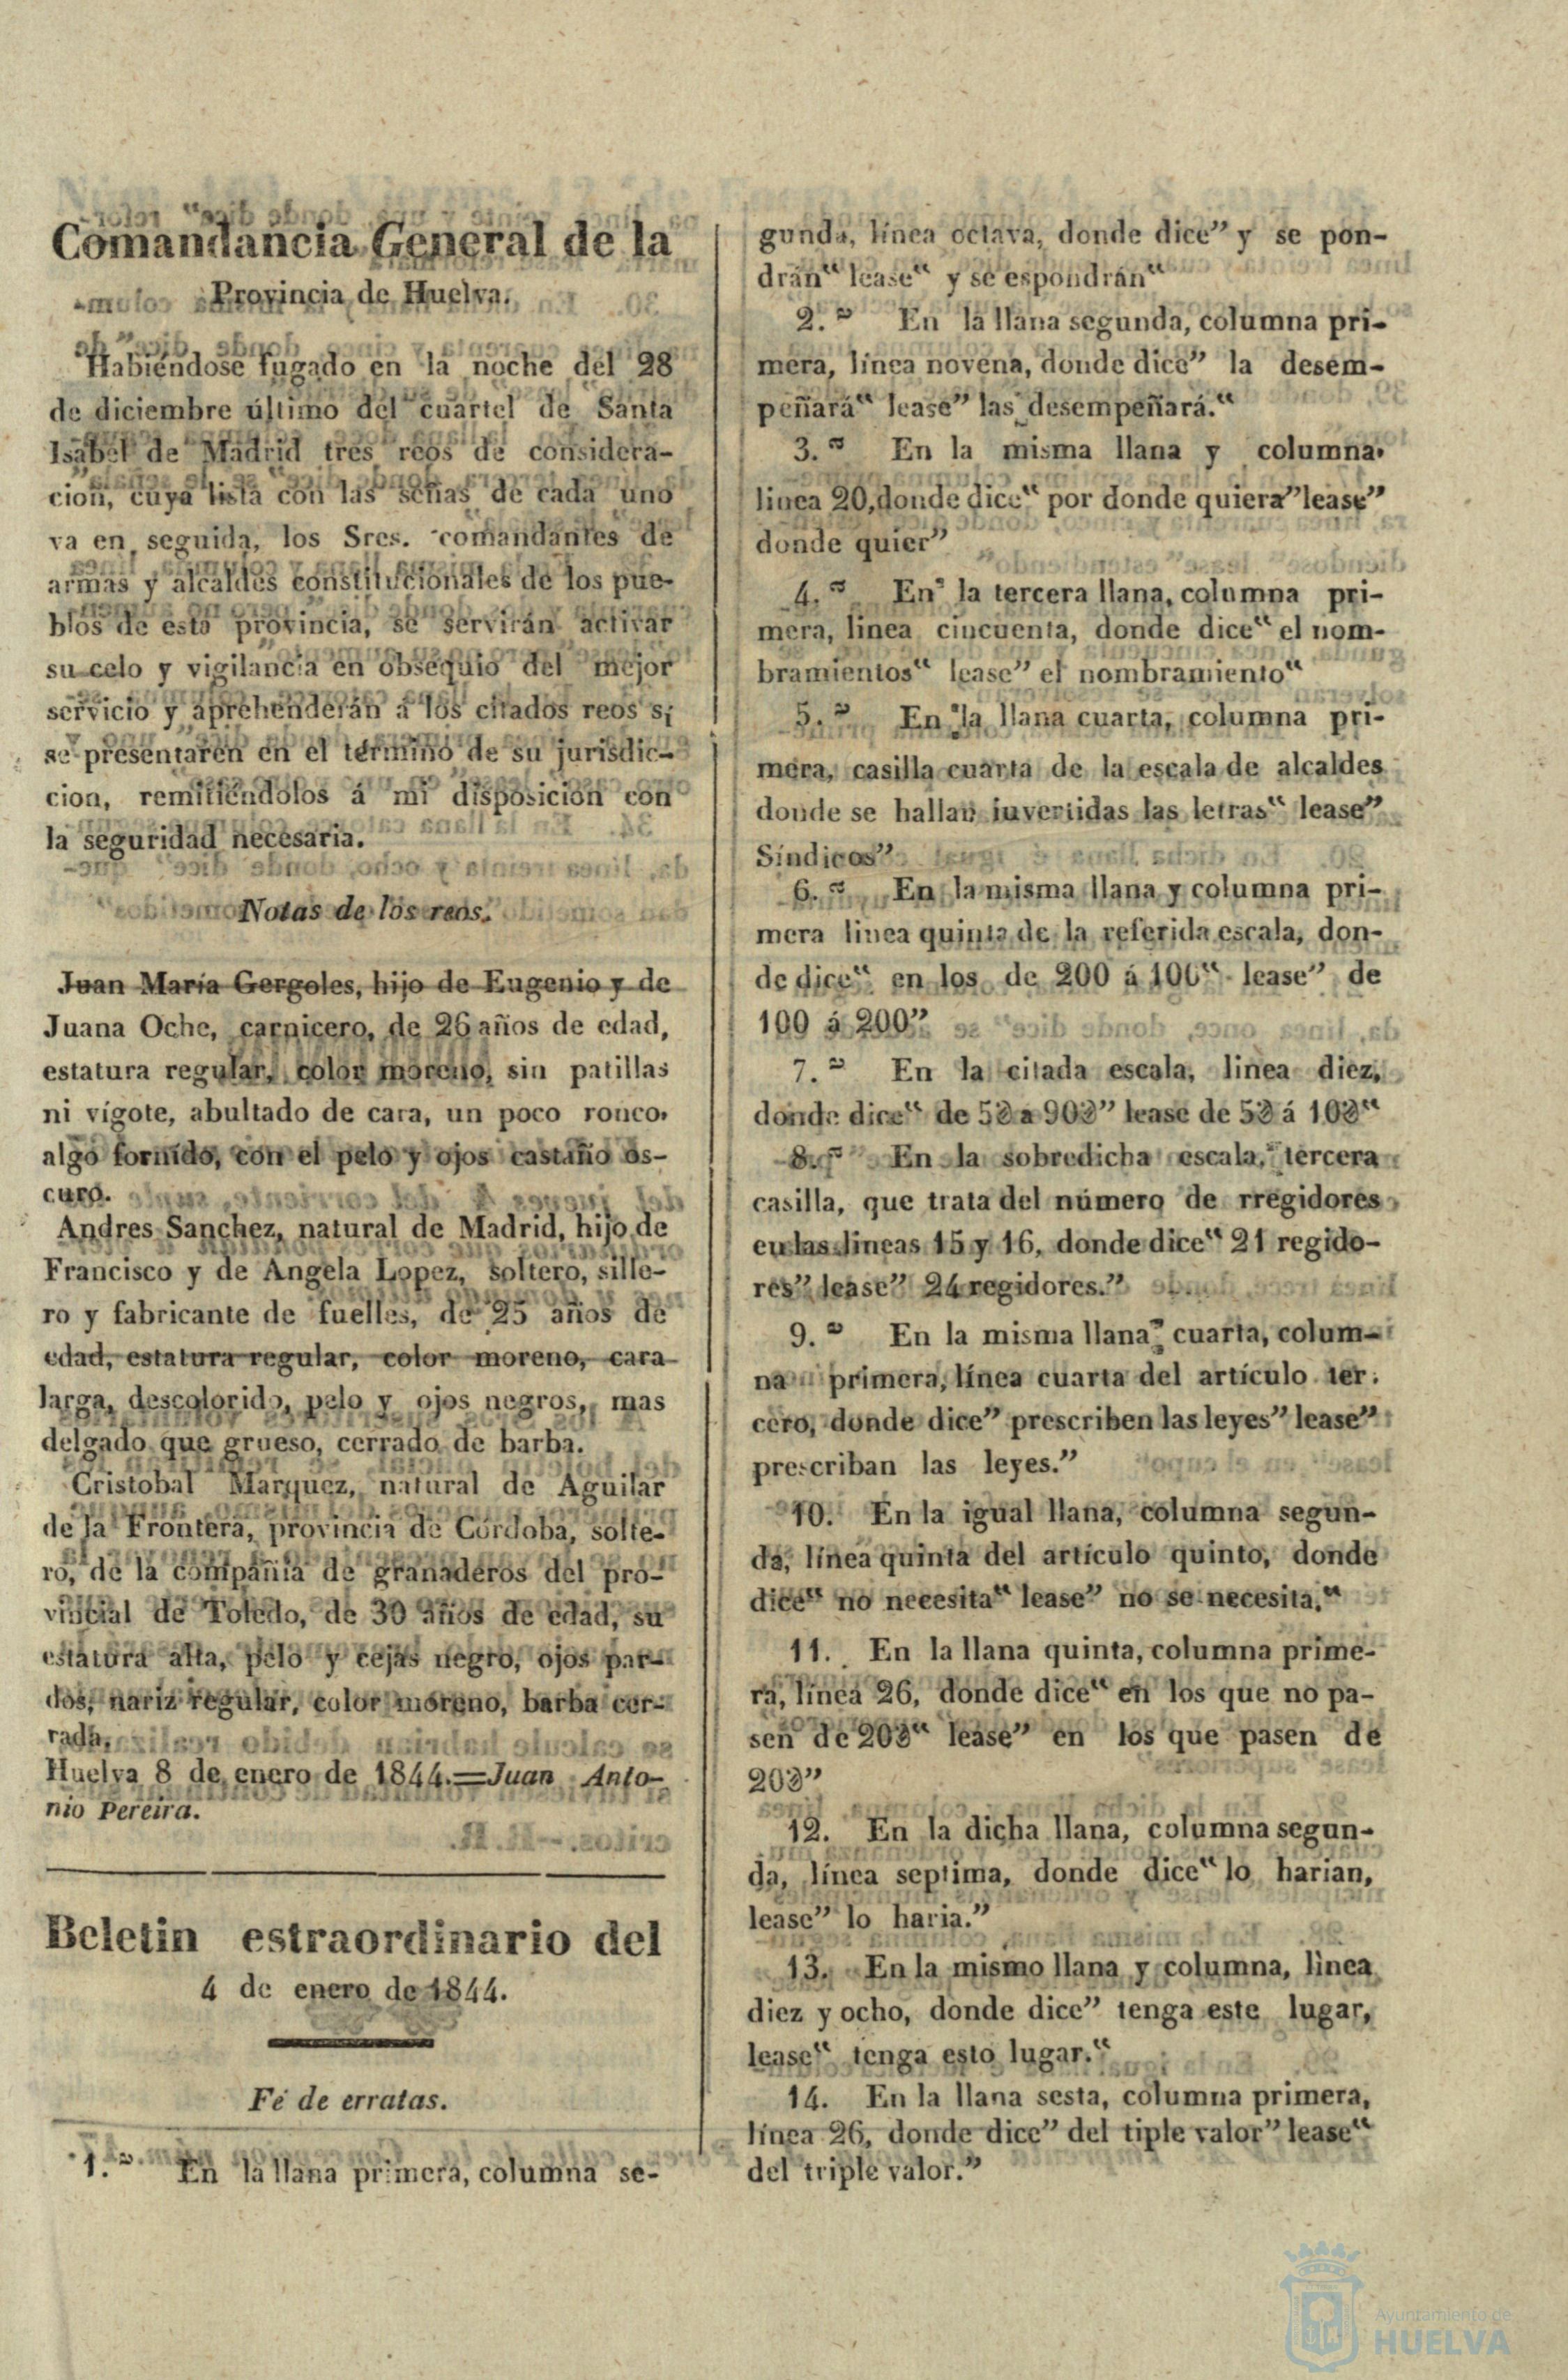 Comandancia General de la
Provincia de Huelva.
Habiéndose fugado en la noche del 28
de diciembre último del cuartel de Santa
Isabel de Madrid tres reos de considera-
cion, cuya lista con las señas de cada uno
va en seguida, los Sres. comandantes de
armas y alcaldes constitucionales de los pue-
blos de esta provincia, se servirán activar
su celo y vigilancia en obsequio del mejor
servicio y aprehenderán á los citados reos si
se presentaren en el término de su jurisdic-
cion, remitiéndolos á mi disposicion con
la seguridad necesaria.
Notas de los reos.
Juan María Gergoles, hijo de Eugenio y de
Juana Oche, carnicero, de 26 años de edad,
estatura regular, color moreno, sin patillas
ni vígote, abultado de cara, un poco ronco,
algo fornido, con el pelo y ojos castaño os-
curo.
Andres Sanchez, natural de Madrid, hijo de
Francisco y de Angela Lopez, soltero, sille-
ro y fabricante de fuelles, de 25 años de
edad, estatura regular, color moreno, cara
larga, descolorido, pelo y ojos negros, mas
delgado que grueso, cerrado de barba.
Cristobal Marquez, natural de Aguilar
de la Frontera, provincia de Córdoba, solte-
ro, de la compañia de granaderos del pro-
vincial de Toledo, de 30 años de edad, su
estatura alta, pelo y cejas negro, ojos par-
dos, nariz regular, color moreno, barba cer-
rada.
Huelva 8 de enero de 1844.=Juan Anto-
nio Pereira.
Beletin estraordinario del
4 de enero de 1844.
Fé de erratas.
1.ª En la llana primera, columna se-
gunda, línea octava, donde dice” y se pon-
drán“ lease“ y se espondrán“
2.ª En la llana segunda, columna pri-
mera, línea novena, donde dice” la desem-
peñará“ lease” las desempeñará.“
3.ª En la misma llana y columna,
linea 20, donde dice“ por donde quiera” lease”
donde quier”
4.ª En la tercera llana, columna pri-
mera, linea cincuenta, donde dice“ el nom-
bramientos“ lease” el nombramiento“
5.ª En la llana cuarta, columna pri-
mera, casilla cuarta de la escala de alcaldes
donde se hallan invertidas las letras“ lease”
Síndicos”
6.ª En la misma llana y columna pri-
mera linea quinta de la referida escala, don-
de dice“ en los de 200 á 100“ lease” de
100 á 200”
7.ª En la citada escala, linea diez,
donde dice“ de 5@ a 90@” lease de 5@ á 10@“
8.ª En la sobredicha escala, tercera
casilla, que trata del número de rregidores
en las lineas 15 y 16, donde dice“ 21 regido-
res” lease” 24 regidores.”
9.ª En la misma llana cuarta, colum-
na primera, línea cuarta del artículo ter.
cero, donde dice” prescriben las leyes” lease”
prescriban las leyes.”
10. En la igual llana, columna segun-
da, línea quinta del artículo quinto, donde
dice“ no necesita“ lease” no se necesita.“
11. En la llana quinta, columna prime-
ra, línea 26, donde dice“ en los que no pa-
sen de 20@“ lease” en los que pasen de
20@”
12. En la dicha llana, columna segun-
da, línea septima, donde dice“ lo harian,
lease” lo haria.”
13. En la mismo llana y columna, linea
diez y ocho, donde dice” tenga este lugar,
lease“ tenga esto lugar.“
14. En la llana sesta, columna primera,
línea 26, donde dice” del tiple valor” lease“
del triple valor.”
Ayuntamiento de
HUELVA